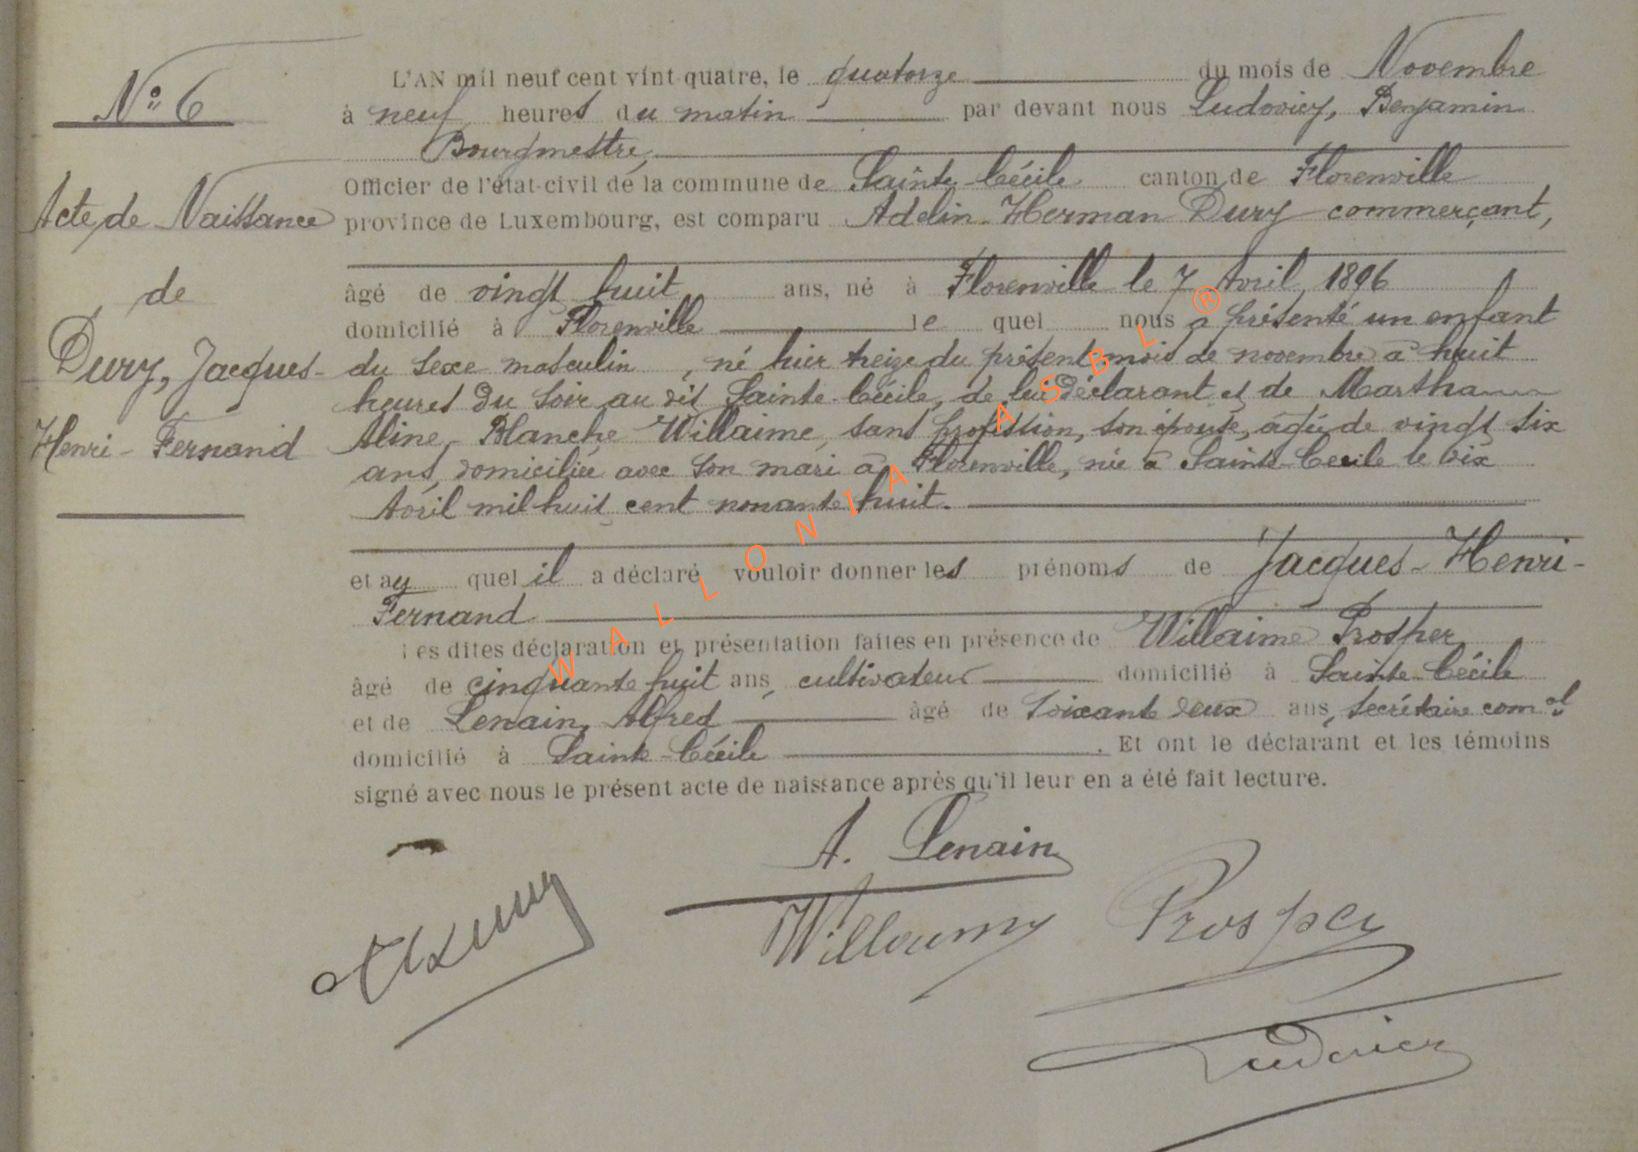 N° 6
Acte de Naissance
de
Dury, Jacques-
Henri-Fernand
L'AN mil neuf cent vint quatre, le quatorze du mois de Novembre
à neuf heures du matin par devant nous Ludovicy, Benjamin
Bourgmestre,
Officier de l'état-civil de la commune de Sainte-Cécile canton de Florenville
province de Luxembourg, est comparu Adelin-Herman Dury commerçant,
âgé de vingt huit ans, né à Florenville le 7 Avril 1896
domicilié à Florenville le quel nous a présenté un enfant
du sexe masculin, né hier treize du présent mois de novembre à huit
heures du soir au dit Sainte-Cécile, de lui déclarant et de Martha
Aline, Blanche Willaime, sans profession, son épouse, agée de vingt six
ans, domiciliée avec son mari à Florenville, née à Sainte-Cecile le six
Avril mil huit cent nonante huit.
et ay quel il a déclaré vouloir donner les prénoms de Jacques-Henri-
Fernand
Les dites déclaration et présentation faites en présence de Willaime Prosper
âgé de cinquante huit ans, cultivateur domicilié à Sainte-Cécile
et de Lenain, Alfred âgé de soixante deux ans, secrétaire comal
domicilié à Sainte-Cécile. Et ont le déclarant et les témoins
signé avec nous le présent acte de naissance après qu'il leur en a été fait lecture.
A. Lenain
Prosper
Ludovicy
WALLONIA ASBL ®